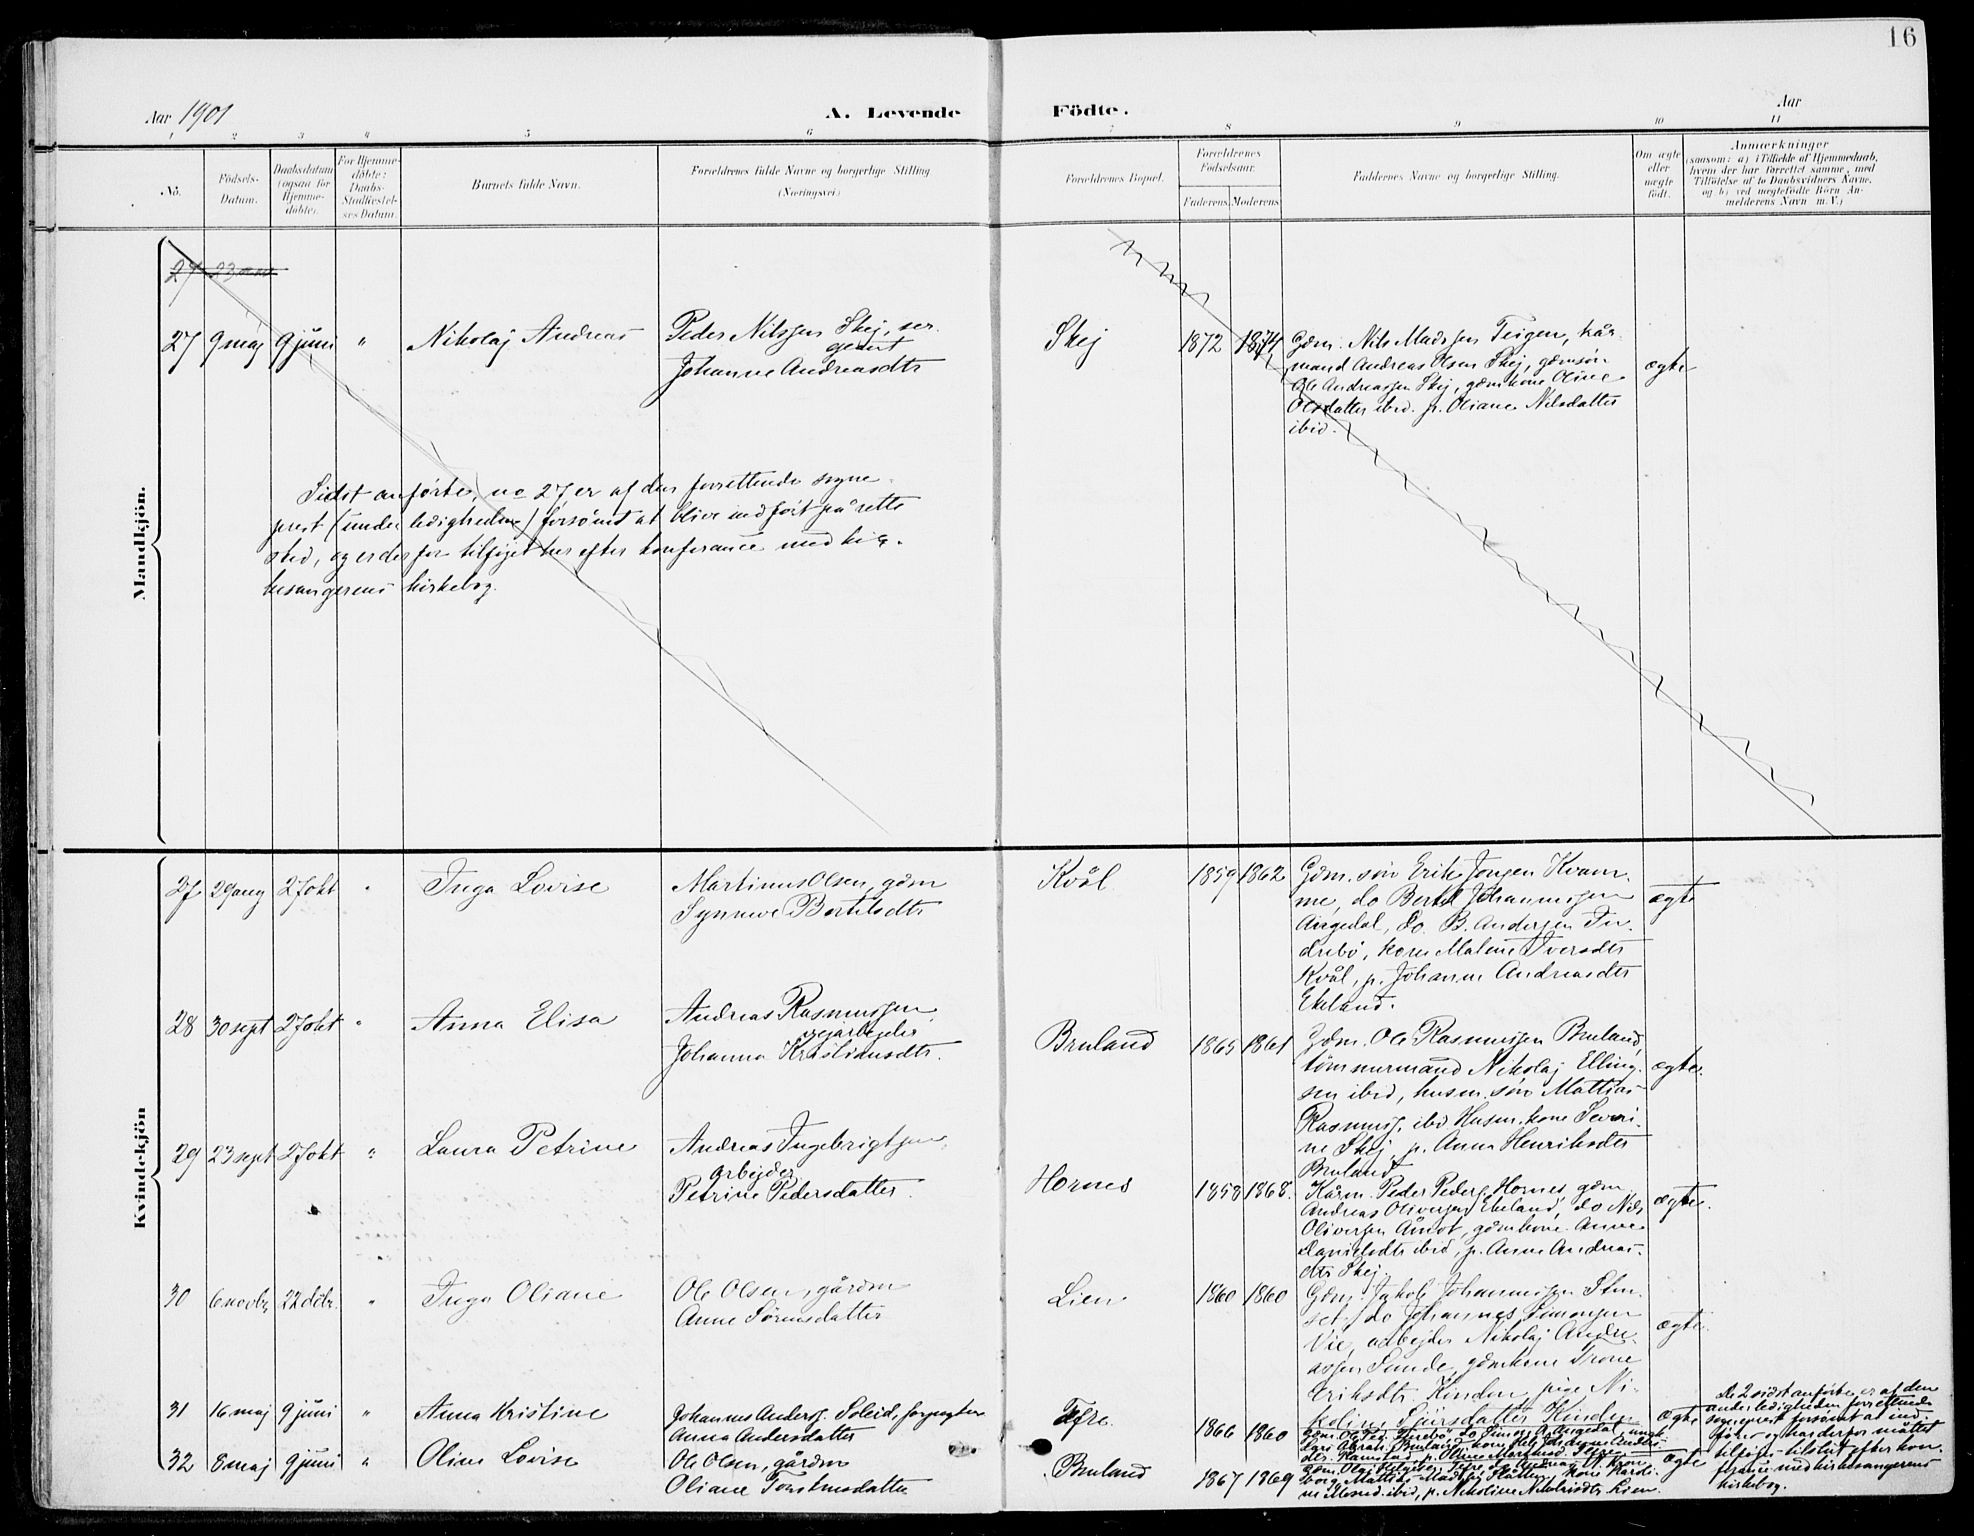 16
Aar 1901
A. Levende Födte.
Aar
1 2 3 4 5 6 7 8 9 10 11
No.
Födsels-Datum.
Daabsdatum (ogsaa for Hjemme-döbte).
For Hjemme-döbte: Daabs-Stadfæstel-ses Datum.
Barnets fulde Navn.
Forældrenes fulde Navne og borgerlige Stilling (Næringsvei)
Forældrenes Bopæl.
Forældrenes Födselsaar.
Faderens. Moderens
Faddernes Navne og borgerlige Stilling.
Om ægte eller uægte født.
Anmærkninger
(saasom: a) i Tilfælde af Hjemmedaab,
hvem der har forrettet samme, med
Tilföielse af to Daabsvidners Navne.
og b) ved uægtefödte Börn An-
melderens Navn m. V.)
Mandkjön.
27 23
27 9 maj 9 juni " Nikolaj Andreas
Peder Nilssen Skej, ser.
gemt
Johanne Andreasdtr
Skej 1872 1874
Gdm. Nils Madssen Teigen, kår
mand Andreas Olsen Skej, gdmsøn
Ole Andreassen Skej, gdmkone Oline
Olsdatter ibid. p. Oliane Nilsdatter
ibid.
ægte
Sidst anførte, no 27 er af den forrettende sogne
prest (under ledigheden) forsømt at blive indført på rette
sted, og er derfor tilføjet her efter konferance med kir.
kesangerens kirkebog.
Kvindekjön
27 29 aug 27 okt " Inga Lovise
Martinus Olsen, gdm
Synneve Bertelsdtr
Kvål 1859 1862
Gdm. søn Erik Jonsen Kvam.
me, do Bertel Johannessen
Angedal, do. B. Andersen In.
drebø, kone Malene Iversdtr
Kvål, p. Johanne Andreasdtr
Ekeland.
ægte
28 30 sept 27 okt " Anna Elisa
Andreas Rasmussen
vejarbejder
Johanna Kristiansdtr.
Bruland 1865 1861
Gdm. Ole Rasmussen Bruland,
tømmermand Nikolaj Elling.
sen ibid, husm. søn Mattias
Rasmuss. ibid Husm. kone Severi.
ne Skej, p. Anna Henriksdtr
Bruland
ægte.
29 23 sept 27 okt " Laura Petrine
Andreas Ingebrigtsen
arbejder
Petrine Pedersdatter.
Hornes 1858 1868.
Kårm. Peder Peders. Hornes, gdm
Andreas Oliversen Ekeland, do Nils
Oliversen Åmot, gdmkone Anne
Danielsdtr ibid, p. Anne Andreas-
dtr Skej.
ægte.
30 6 novbr 22 dcbr. " Inga Oliane
Ole Olsen, gårdm
Anne Sørensdatter
Lien 1860 1860
Gdm. Jakob Johannessen Sten.
set, do Johannes Simonsen
Vie, arbejder Nikolaj Andre.
assen Sunde, gdmkone Trone
Eriksdtr. Kinden, pige Ni-
koline Sjursdatter Kinden
ægte.
31 16 maj 9 juni " Anna Kristine
Johannes Anders. Soleid, forpagter
Anna Andersdatter
Tefre. 1866 1860
ægte
32 8 maj 9 juni " Oline Lovise
Ole Olsen, gårdm
Oliane Torstensdatter
Bruland 1867 1869
ægte
De 2 sidst anførte er af den
under ledigheden forrettende
sogneprest forsømt at ind
føre og har derfor måttet
tilføjes tilslut efter kon.
ferance med kirkesangerens
kirkebog.